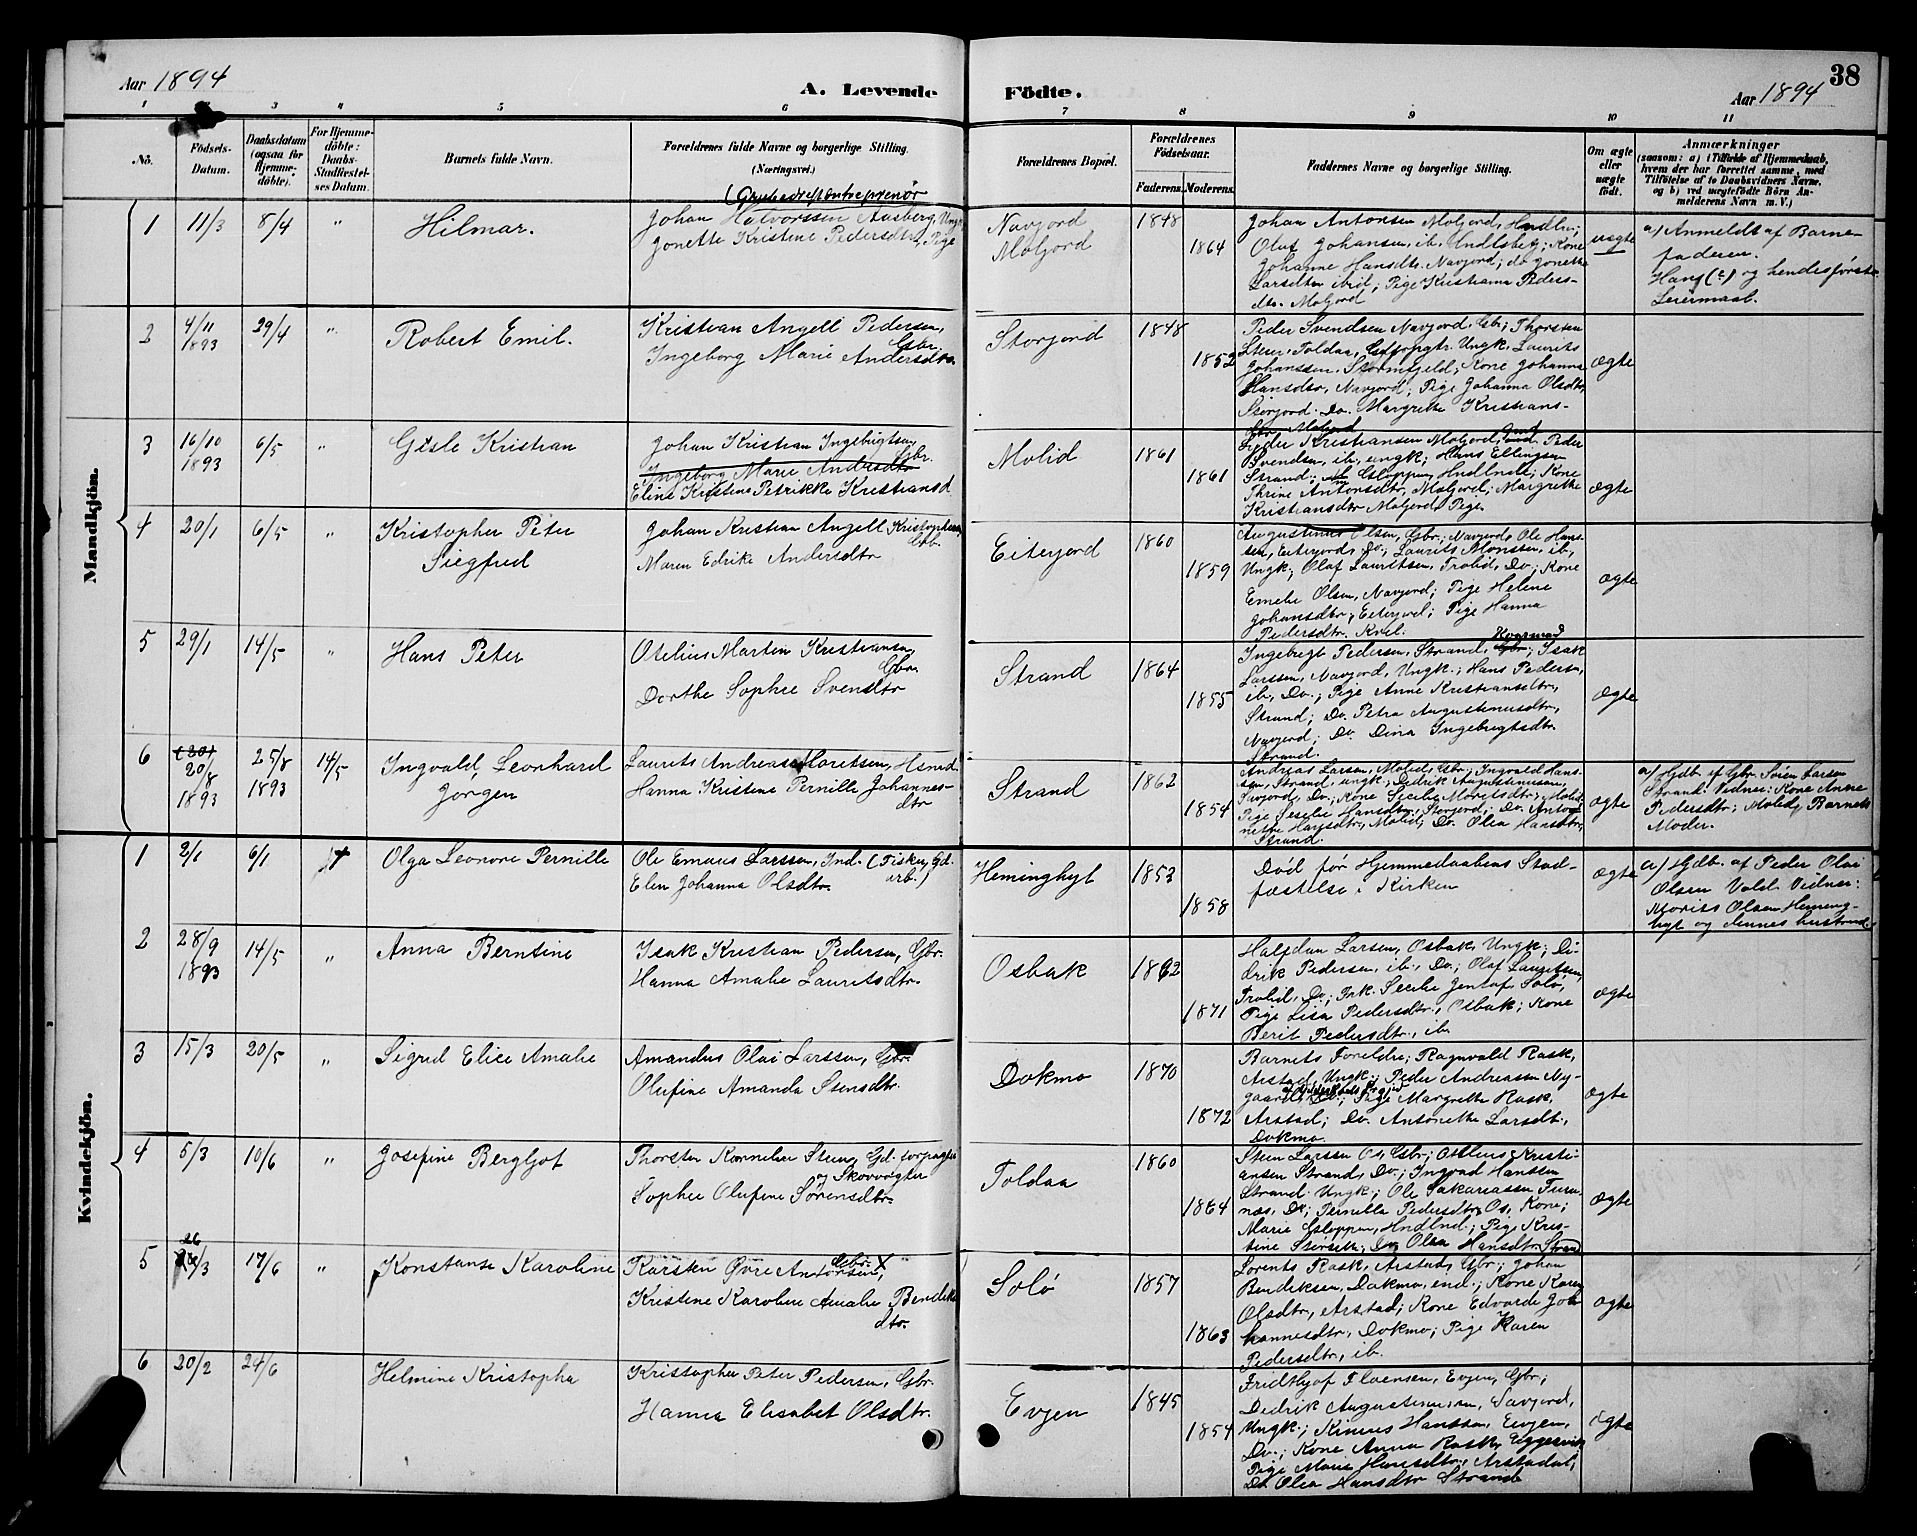 Aar 1894
A. Levende
Födte.
38
Aar 1894
1 2 3 4 5 6 7 8 9 10 11
No.
Födsels-
Datum.
Daabsdatum
(ogsaa for
Hjemme-
döbte).
For Hjemme-
döbte:
Daabs-
Stadfæstel-
ses Datum.
Barnets fulde Navn.
Forældrenes fulde Navne og borgerlige Stilling.
(Næringsvei.)
Forældrenes Bopæl.
Forældrenes
Födselsaar.
Faderens. Moderens.
Faddernes Navne og borgerlige Stilling.
Om ægte
eller
uægte
födt.
Anmærkninger
(saasom: a) i Tilfælde af Hjemmedaab,
hvem der har forrettet samme, med
Tilföielse af to Daabsvidners Navne,
og b) ved uægtefödte Börn An-
melderens Navn m. V.)
Mandkjön.
1 11/3 8/4 " Hilmar.
Johan Halvorssen Aasberg, Ungk
Jonette Kristine Pedersdtr, Pige
Navjord
Moljord
1848
1864
Johan Antonsen Moljord, Handlbr;
Oluf Johansen, ib, Kone
Johanne Hansdtr. Navjord; do Jonette
Larsdtr ibid; Pige Kristiana Peders-
dtr. Moljord
uægte
a) Anmeldt af Barne-
faderen.
Hans (2) og hendes første
Leiermaal.
2 4/11 1893 29/4 " Robert Emil.
Kristian Angell Pedersen,
Gbr.
Ingeborg Marie Andersdtr.
Storjord
1848
1852
Peder Svendsen Navjord, Gbr; Thorsten
Steen, Toldaa, Ungk, Laurits
Johanssen, Stormfjeld; Kone Johanna
Hansdtr, Navjord; Pige Johanna Olsdtr,
Storjord. Do. Margrethe Kristians-
dtr Moljord
ægte
3 16/10 1893 6/5 " Gisle Kristian
Johan Kristian Ingebrigtsen,
Gbr.
Ingeborg Marie Andersdtr
Elina Kristine Petrikke Kristiansd
Molid
1861
1861
Peder Kristiansen Moljord, Peder
Svendsen, ib, ungk; Hans Ellingsen
Strand; Kone
Thrine Antonsdtr, Moljord; Margrethe
Kristiansdtr Moljord, Pige
ægte
4 20/1 6/5 " Kristopher Peter
Siegfred
Johan Kristian Angell Kristophersen
Gbr.
Maren Edrike Andersdtr
Eiterjord
1860
1859
Augustinus Olsen, Gbr., Navjord, Ole Hans-
sen, Eiterjord, Do; Laurits Monssen, ib,
Ungk; Olaf Lauritsen, Trolid, Do; Kone
Emelie Olsen, Navjord; Pige Helene
Johansdtr, Eiterjord; Pige Hanna
Pedersdtr. Kvil.
ægte
5 29/1 14/5 " Hans Peter
Otelius Martin Kristiansen,
Gbr.
Dorthe Sophie Svendtr
Strand
1864
1855
Ingebrigt Pedersen, Strand, Gbr; Isak
Larssen, Navjord, Ungk; Hans Pedersen,
ib, Do; Pige Anne Kristiansdtr,
Strand; Do. Petra Augustinusdtr,
Navjord; Do. Dina Ingebrigtsdtr
Strand.
ægte
6 20/8 1893 25/8 1893 14/5 Ingvald Leonhard
Jorgen
Laurits Andreas Moritsen, Hsmd
Hanna Kristine Pernille Johannes-
dtr
Strand
1862
1854
Andreas Larsen, Molid, Gbr; Ingvald Hans-
sen, Strand, ungk; Didrik Augustinusen
Navjord, Do; Kone Secilie Moritsdtr, Molid
Pige Jeselie Hansdtr, Storjord; Do. Anto-
nette Hansdtr, Molid; Do. Olea Hansdtr,
Strand.
ægte
a) Hjdb. af Gbr. Søren Larsen
Strand. Vidner: Kone Anne
Pedersdtr, Molid, Barnets
Moder.
Kvindekjön.
1 2/1 6/1 † Olga Leonore Pernille
Ole Emaus Larssen, Ind. (Fisker, Gd.
arb.)
Elen Johanna Olsdtr.
Heminghyt
1853
1858
Død før Hjemmedaabens Stad-
fæstelse i Kirken
ægte
a) Hjdb. af Peder Olai
Olsen Vold. Vidner:
Morits Olsen Heming-
hyt og dennes hustru.
2 28/9 1893 14/5 " Anna Berntine
Isak Kristian Pedersen, Gbr.
Hanna Amalie Lauritsdtr.
Osbak
1862
1871
Halfdan Larsen, Osbak, Ungk; Di-
drik Pedersen, ib., Do; Olaf Lauritsen,
Trolid, Do; Secilie Jentof Solø,
Pige Lisa Pedersdtr., Osbak; Kone
Berit Pedersdtr., ib.
ægte
3 15/3 20/5 " Sigrid Elice Amalie
Amandus Olai Larssen, Gbr.
Olufine Amanda Stensdtr.
Dokmo
1870
1872
Barnets Forældre; Ragnvald Rask,
Arstad, Ungk; Peder Andreassen Ny-
gaard, Do; Pige Margrethe Rask,
Arstad; Do. Antonette Larsdtr.,
Dokmo.
ægte
4 5/3 10/6 " Josefine Bergljot
Thorsten Kornelius Steen, Gd. forpagter
og Skovvogter
Sophie Olufine Sørensdtr.
Toldaa
1860
1864
Steen Larssen Os, Gbr; Otelius Kristi-
ansen Strand, Do; Ingvad Hanssen
Strand, Ungk; Ole Sakariassen
næs, Do; Pernilla Pedersdtr, Os, Kone;
Marie Hndlnd; Pige Kris-
tine Do Olea Hansdtr Strand
ægte
5 26/3 17/6 " Konstanse Karoline
Karsten Øvre Antonsen, Gbr.
Kristine Karoline Amalie Bendiks
dtr.
Solø
1857
1863
Lorents Rask, Arstad, Gbr; Johan
Bendiksen, Dokmo, end.; Kone Karen
Olsdtr, Arstad; Kone Edvarda Jo-
hannesdtr, Dokmo; Pige Karen
Pedersdtr., ib.
ægte
6 20/2 24/6 Helmine Kristopha
Kristopher Peter Pedersen, Gbr.
Hanna Elisabet Olsdtr.
Evjen
1845
1854
Fridthjof Floensen, Evjen, Gbr;
Didrik Augustinusen, Navjord,
Ungk; Kinius Hanssen, Evjen,
Do; Kone Anna Rask,
Pige Maria Hansdtr, Arstadal,
Do Olea Hansdtr Strand
ægte